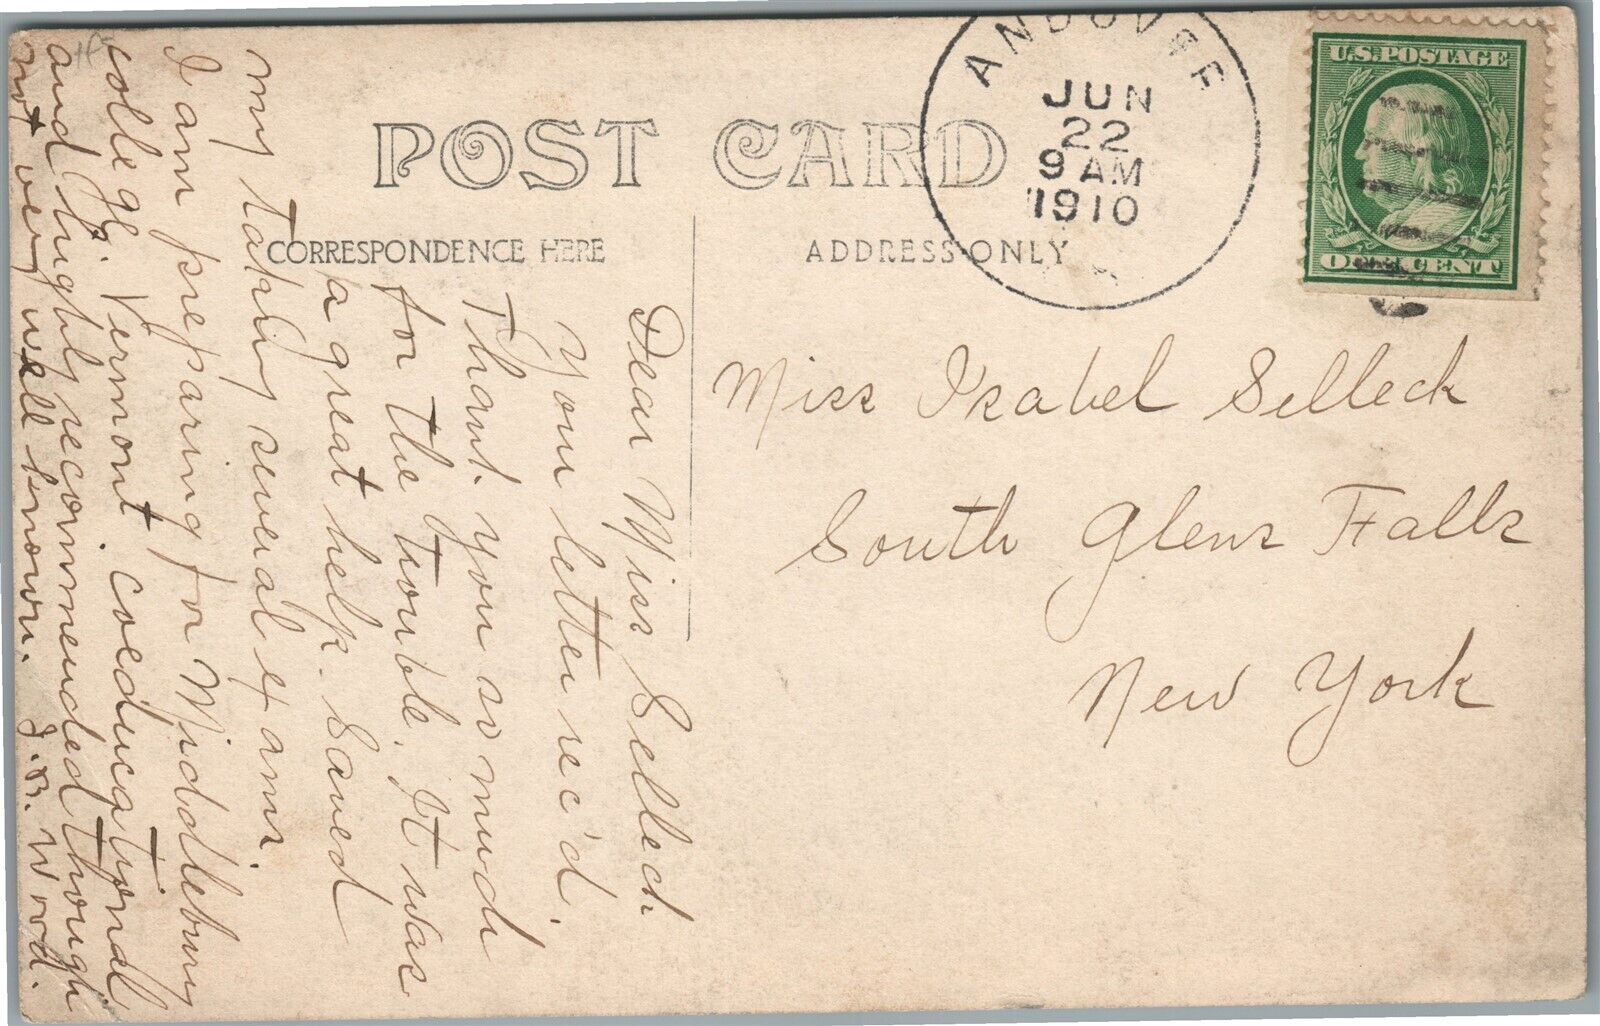 POST CARD
CORRESPONDENCE HERE
ADDRESS ONLY
ANDOVER
JUN
22
9 AM
1910
U.S. POSTAGE
ONE CENT
Miss Isabel Selleck
South Glens Falls
New York
Dear Miss Selleck
Your letter rec'd.
Thank you so much
for the trouble. It was
a great help. Saved
my taking several exams.
I am preparing for Middlebury
college, Vermont coeducational
and highly recommended though
not very well known. J.B. Word.